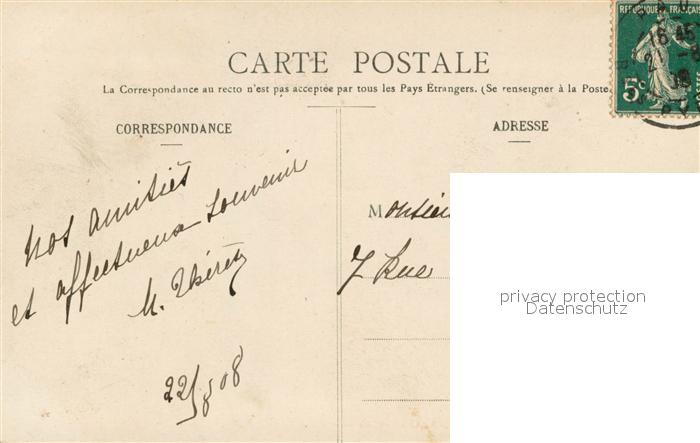 CARTE POSTALE
La Correspondance au recto n'est pas acceptée par tous les Pays Étrangers. (Se renseigner à la Poste.
REPUBLIQUE FRANÇAISE
5c
CORRESPONDANCE
ADRESSE
Nos amitiés
et affectueux souvenir
M.
22/8 08
Monsieu
7 Rue
privacy protection
Datenschutz